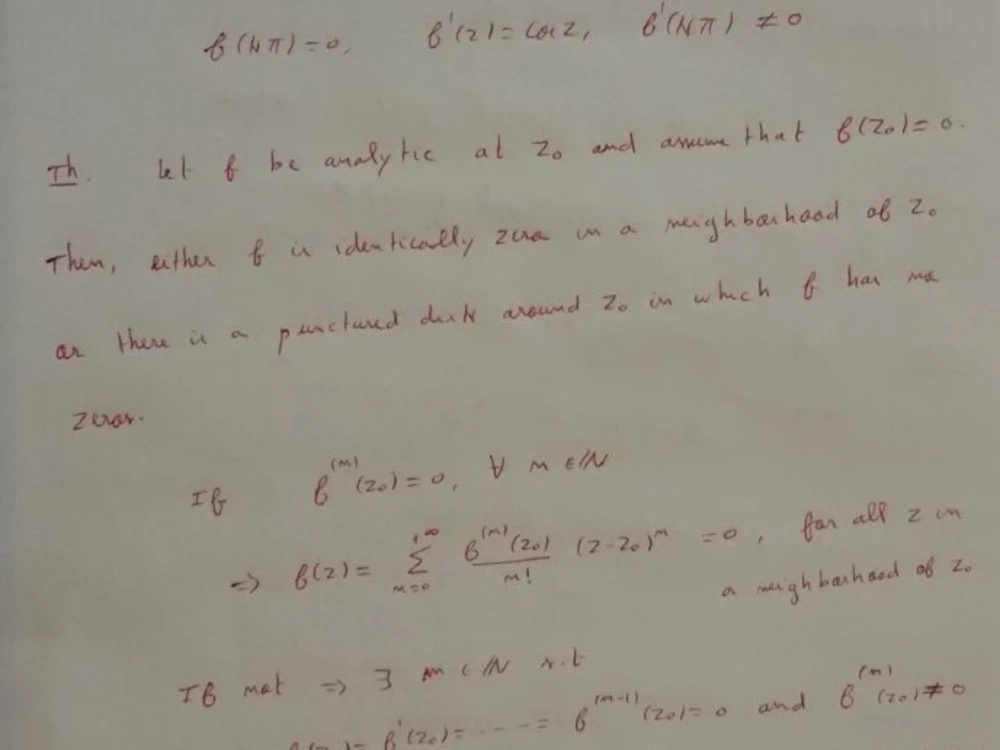 f(kπ)=0, f'(z)=cos z, f'(kπ) ≠ 0
Th. Let f be analytic at z₀ and assume that f(z₀)=0.
Then, either f is identically zero in a neighborhood of z₀
or there is a punctured disk around z₀ in which f has no
zeros.
If f⁽ⁿ⁾(z₀)=0, ∀ n ∈ ℕ
=> f(z) = Σ_{n=0}^{+∞} f⁽ⁿ⁾(z₀)/n! (z-z₀)ⁿ = 0, for all z in
a neighborhood of z₀
If not => ∃ m ∈ ℕ s.t
f(z₀)= f'(z₀)= ----= f⁽ᵐ⁻¹⁾(z₀)=0 and f⁽ᵐ⁾(z₀)≠0